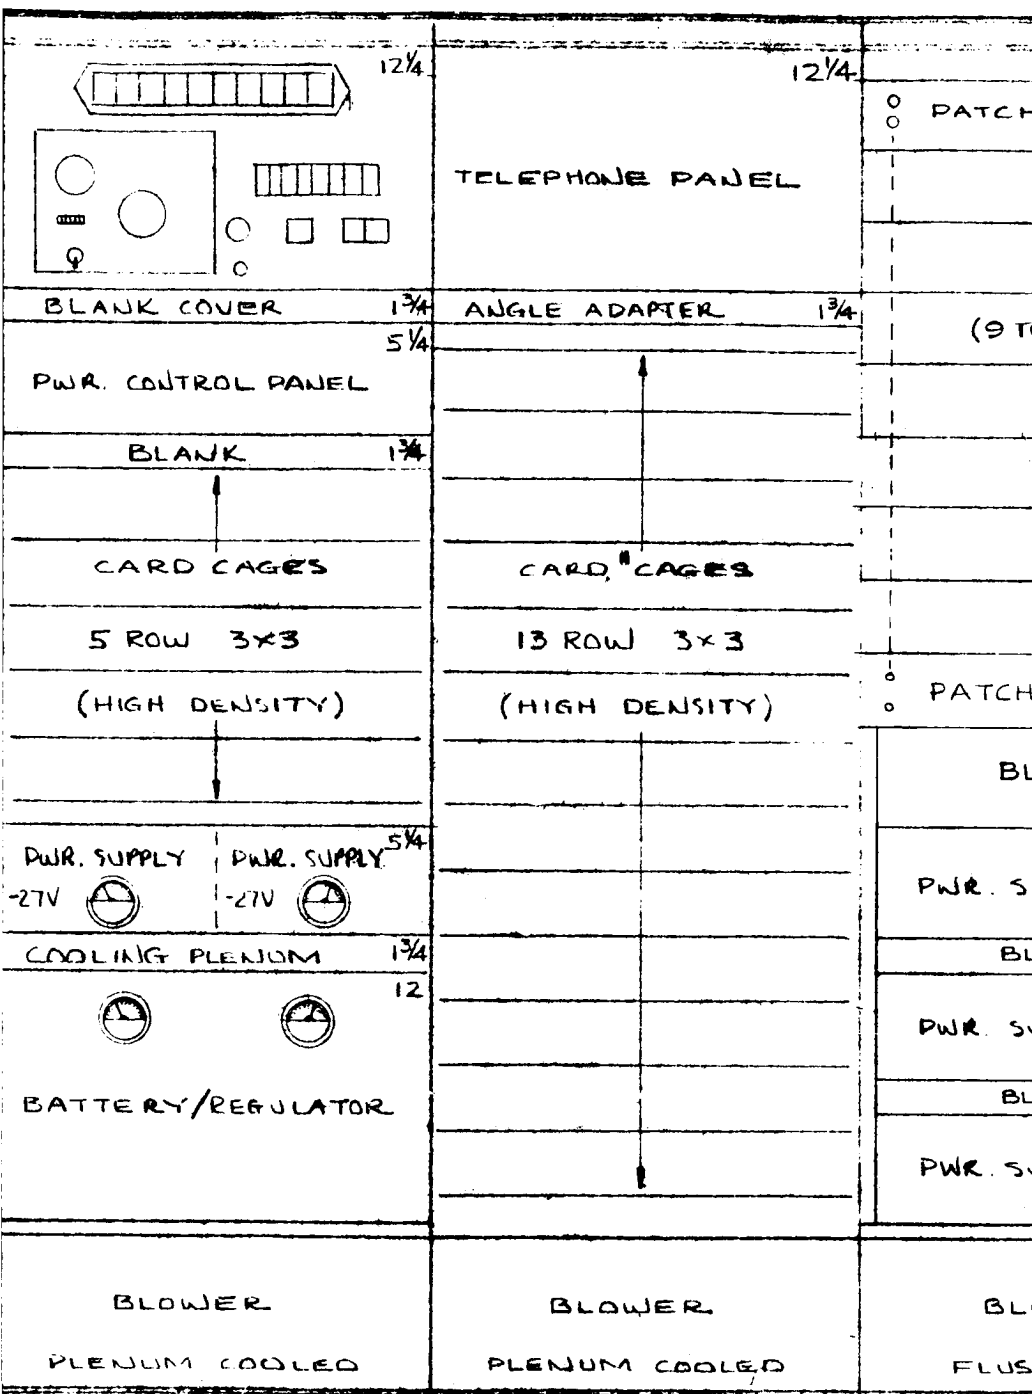 12¼
BLANK COVER 1¾
5¼
PWR. CONTROL PANEL
BLANK 1¾
CARD CAGES
5 ROW 3×3
(HIGH DENSITY)
5¼
PWR. SUPPLY PWR. SUPPLY
-27V -27V
COOLING PLENUM 1¾
12
BATTERY/REGULATOR
BLOWER
PLENUM COOLED
12¼
TELEPHONE PANEL
ANGLE ADAPTER 1¾
CARD CAGES
13 ROW 3×3
(HIGH DENSITY)
BLOWER
PLENUM COOLED
PATCH
(9 TO
PATCH
BL
PWR. S
BL
PWR. SU
BL
PWR. SU
BLO
FLUS